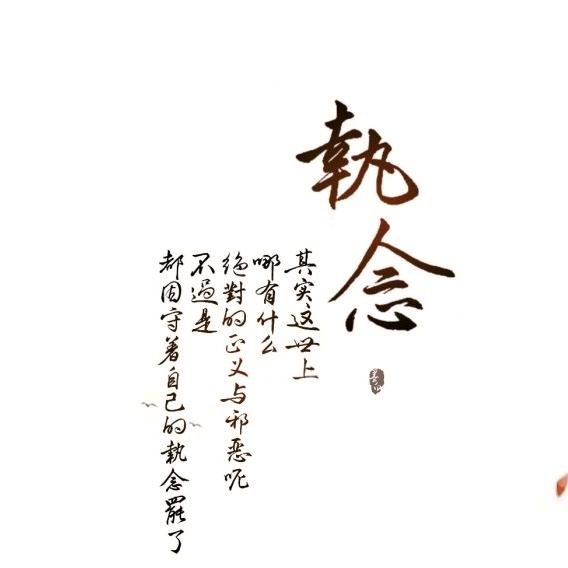 執念
其实这世上
哪有什么
绝對的正义与邪恶呢
不過是
都固守着自己的執念罷了